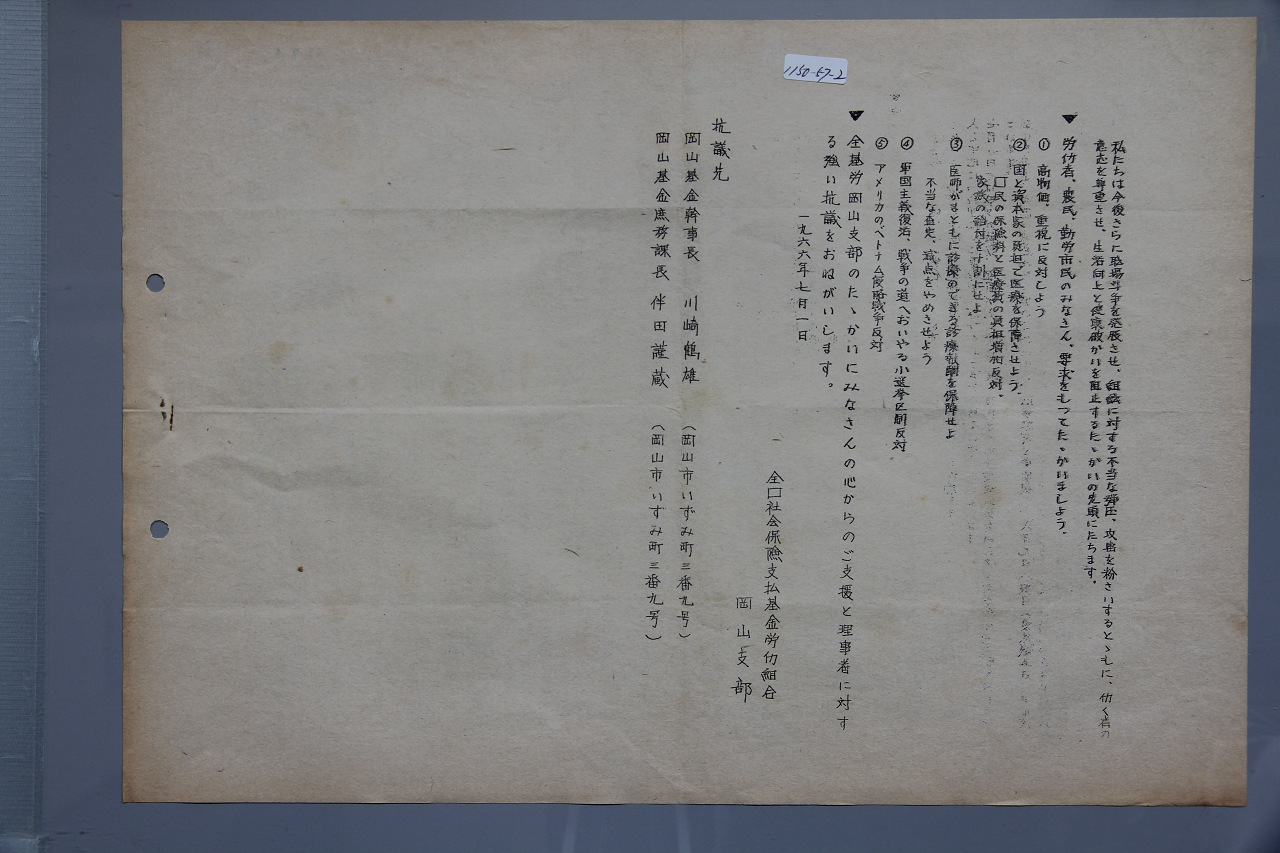 1150-57-2
私たちは今後さらに職場斗争を発展させ、組織に対する不当な弾圧、攻害を粉さいするとゝもに、仂く者の
意志を尊重させ、生活向上と健康破かいを阻止するたゝかいの先頭にたちます。
▼ 労仂者、農民、勤労市民のみなさん、要求をもってたゝかいましよう。
① 高物価、重税に反対しよう
② 国と資本家の負担で医療を保障させよう。
口民の保険料と医療費の負担増加反対。
家族の給付を十割にせよ
③ 医師がまともに診療のできる診療報酬を保障せよ
不当な査定、減点をやめさせよう
④ 軍国主義復活、戦争の道へおいやる小選挙区制反対
⑤ アメリカのベトナム侵略戦争反対
▼ 全基労岡山支部のたゝかいにみなさんの心からのご支援と理事者に対す
る強い抗議をおねがいします。
一九六六年七月一日
全口社会保険支払基金労仂組合
岡山支部
抗議先
岡山基金幹事長 川崎鶴雄 (岡山市いずみ町三番九号)
岡山基金庶務課長 伴田謹蔵 (岡山市いずみ町三番九号)